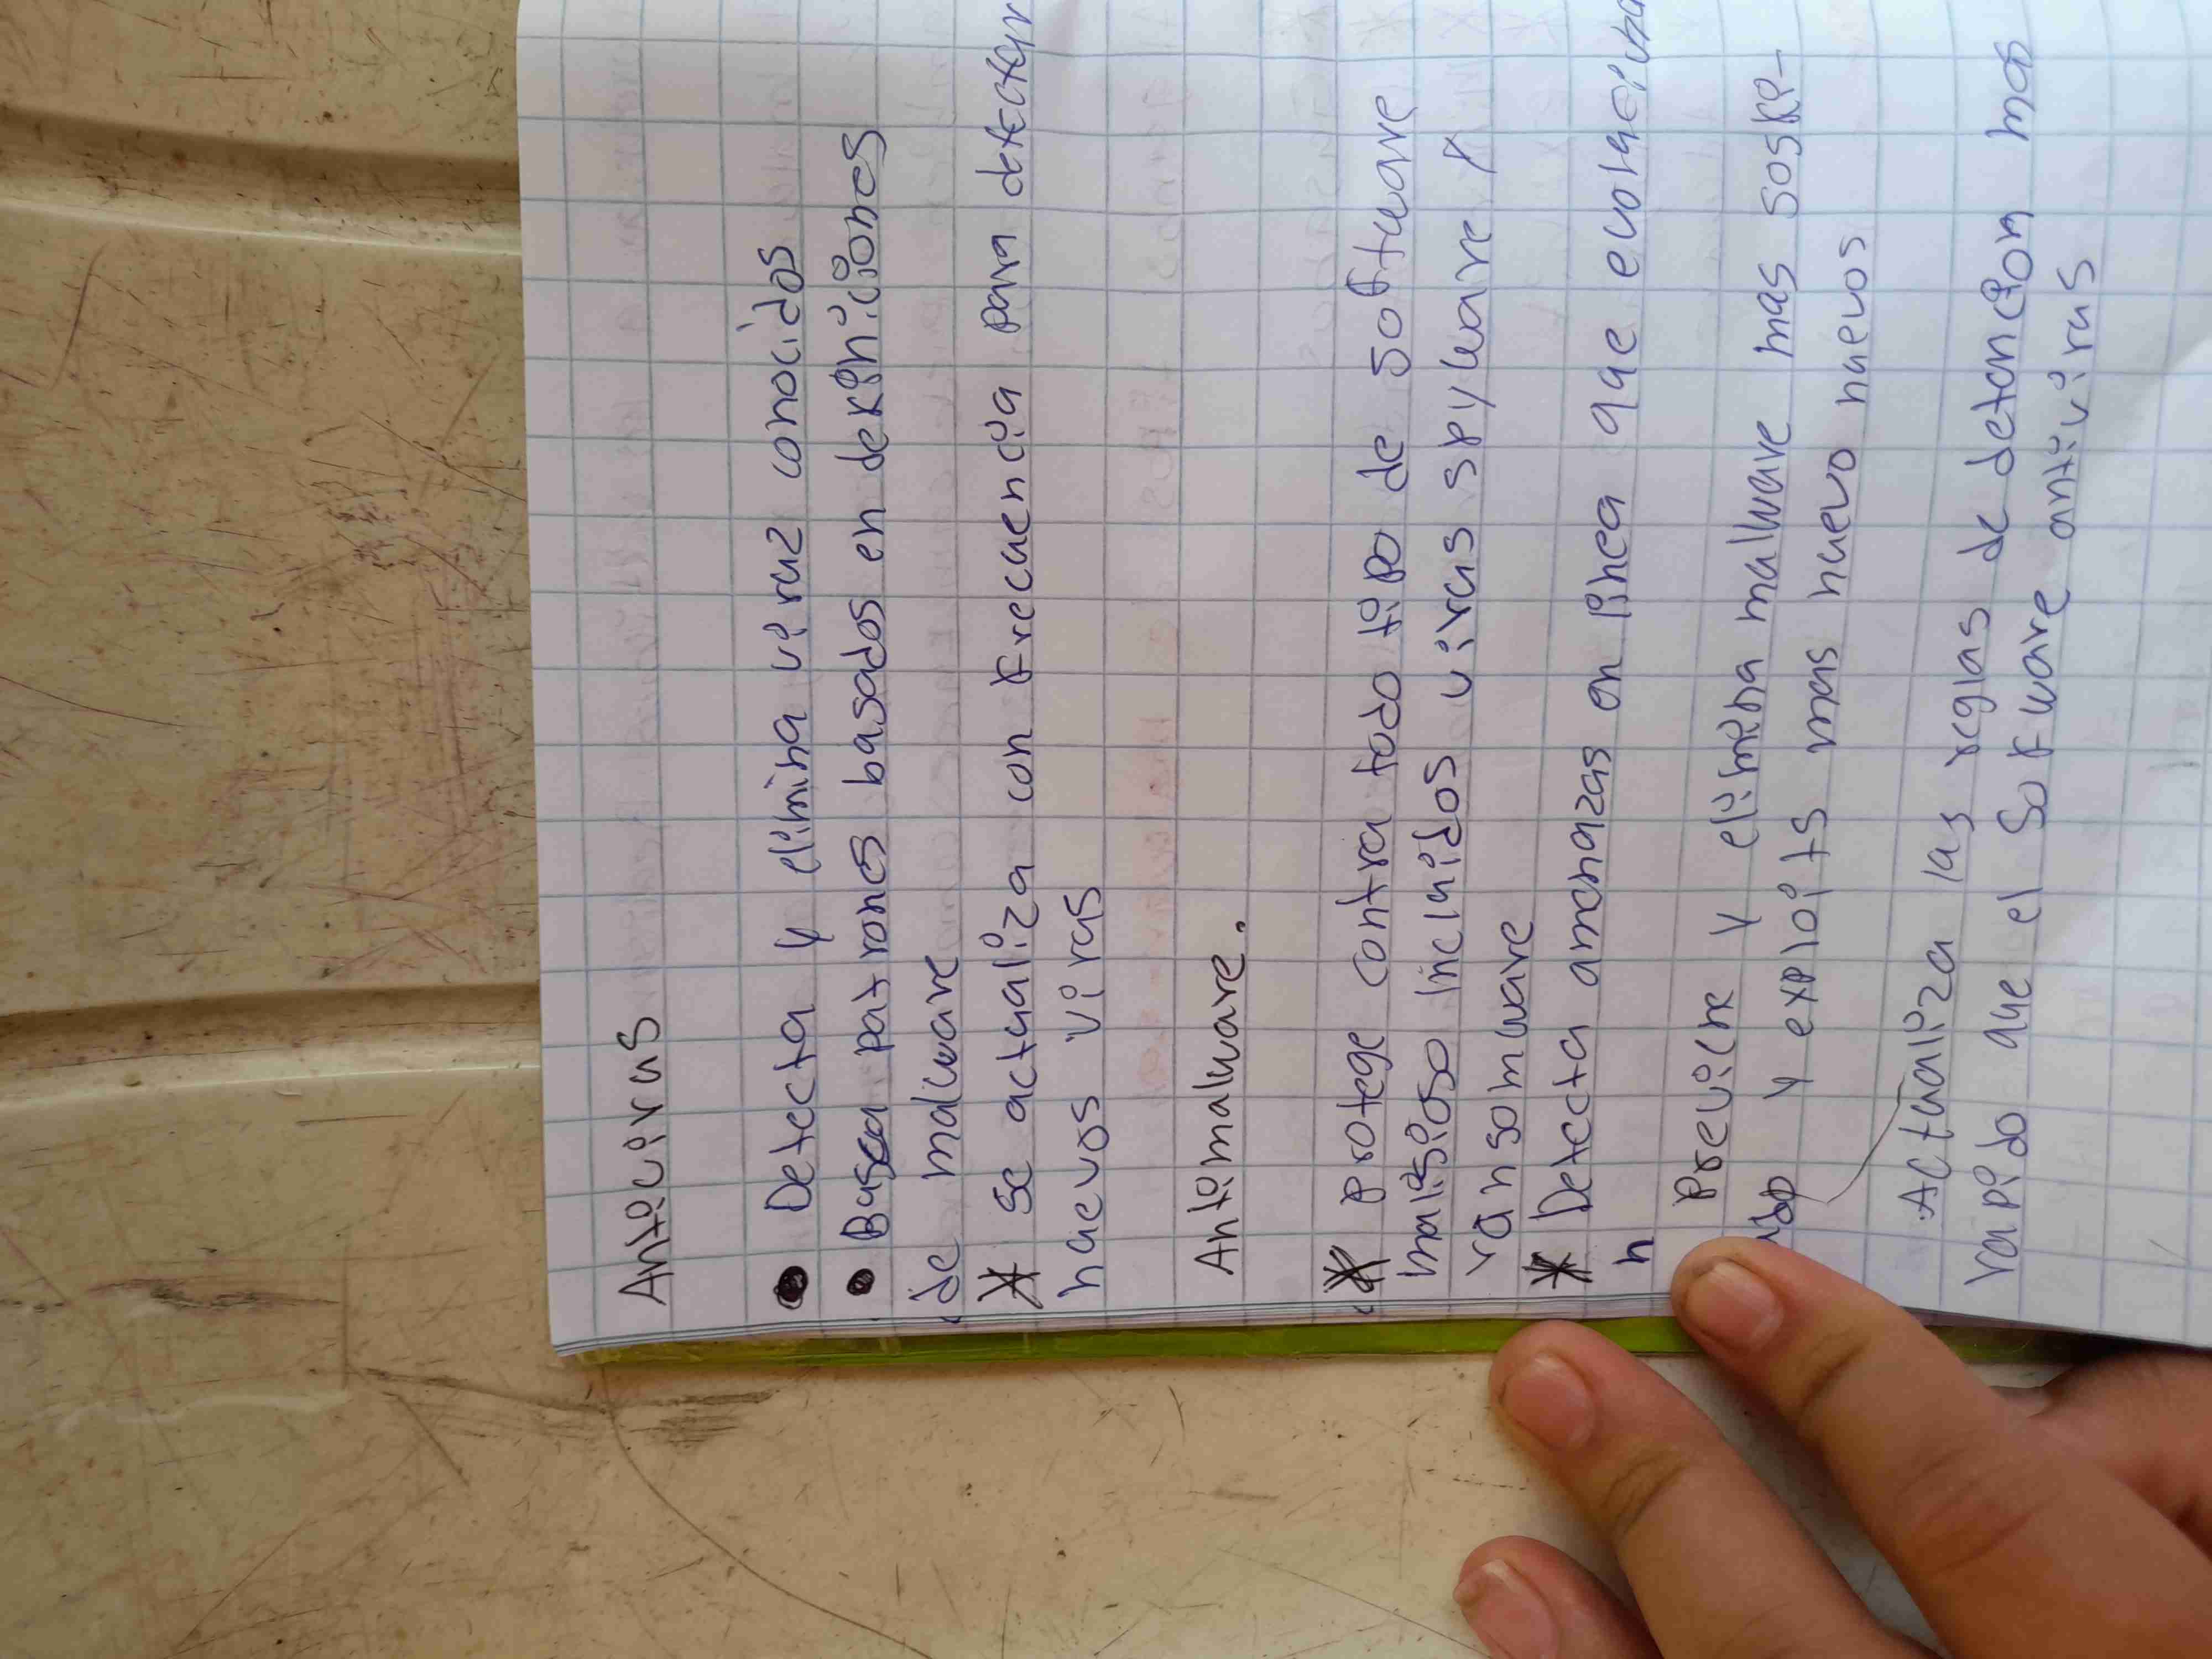 Antivirus
Detecta y elimina viruz conocidos
Busca patrones basados en definiciones
de malware
se actualiza con frecuencia para detectar
nuevos virus
Antimalware.
protege contra todo tipo de software
malisioso incluidos virus spyware y
ransomware
Detecta amenazas en linea que evoluciona
n
Previene y elimina malware mas sofisti-
y exploits mas nuevo nuevos
Actualiza las reglas de detencion mas
rapido que el software antivirus